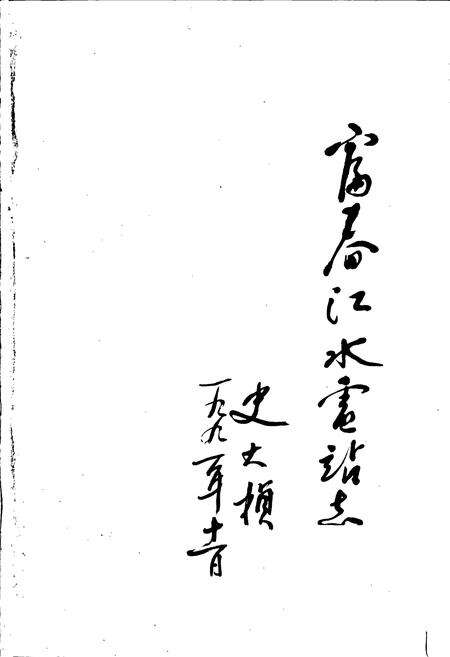 富春江水电站志
史大桢
一九九一年十一月